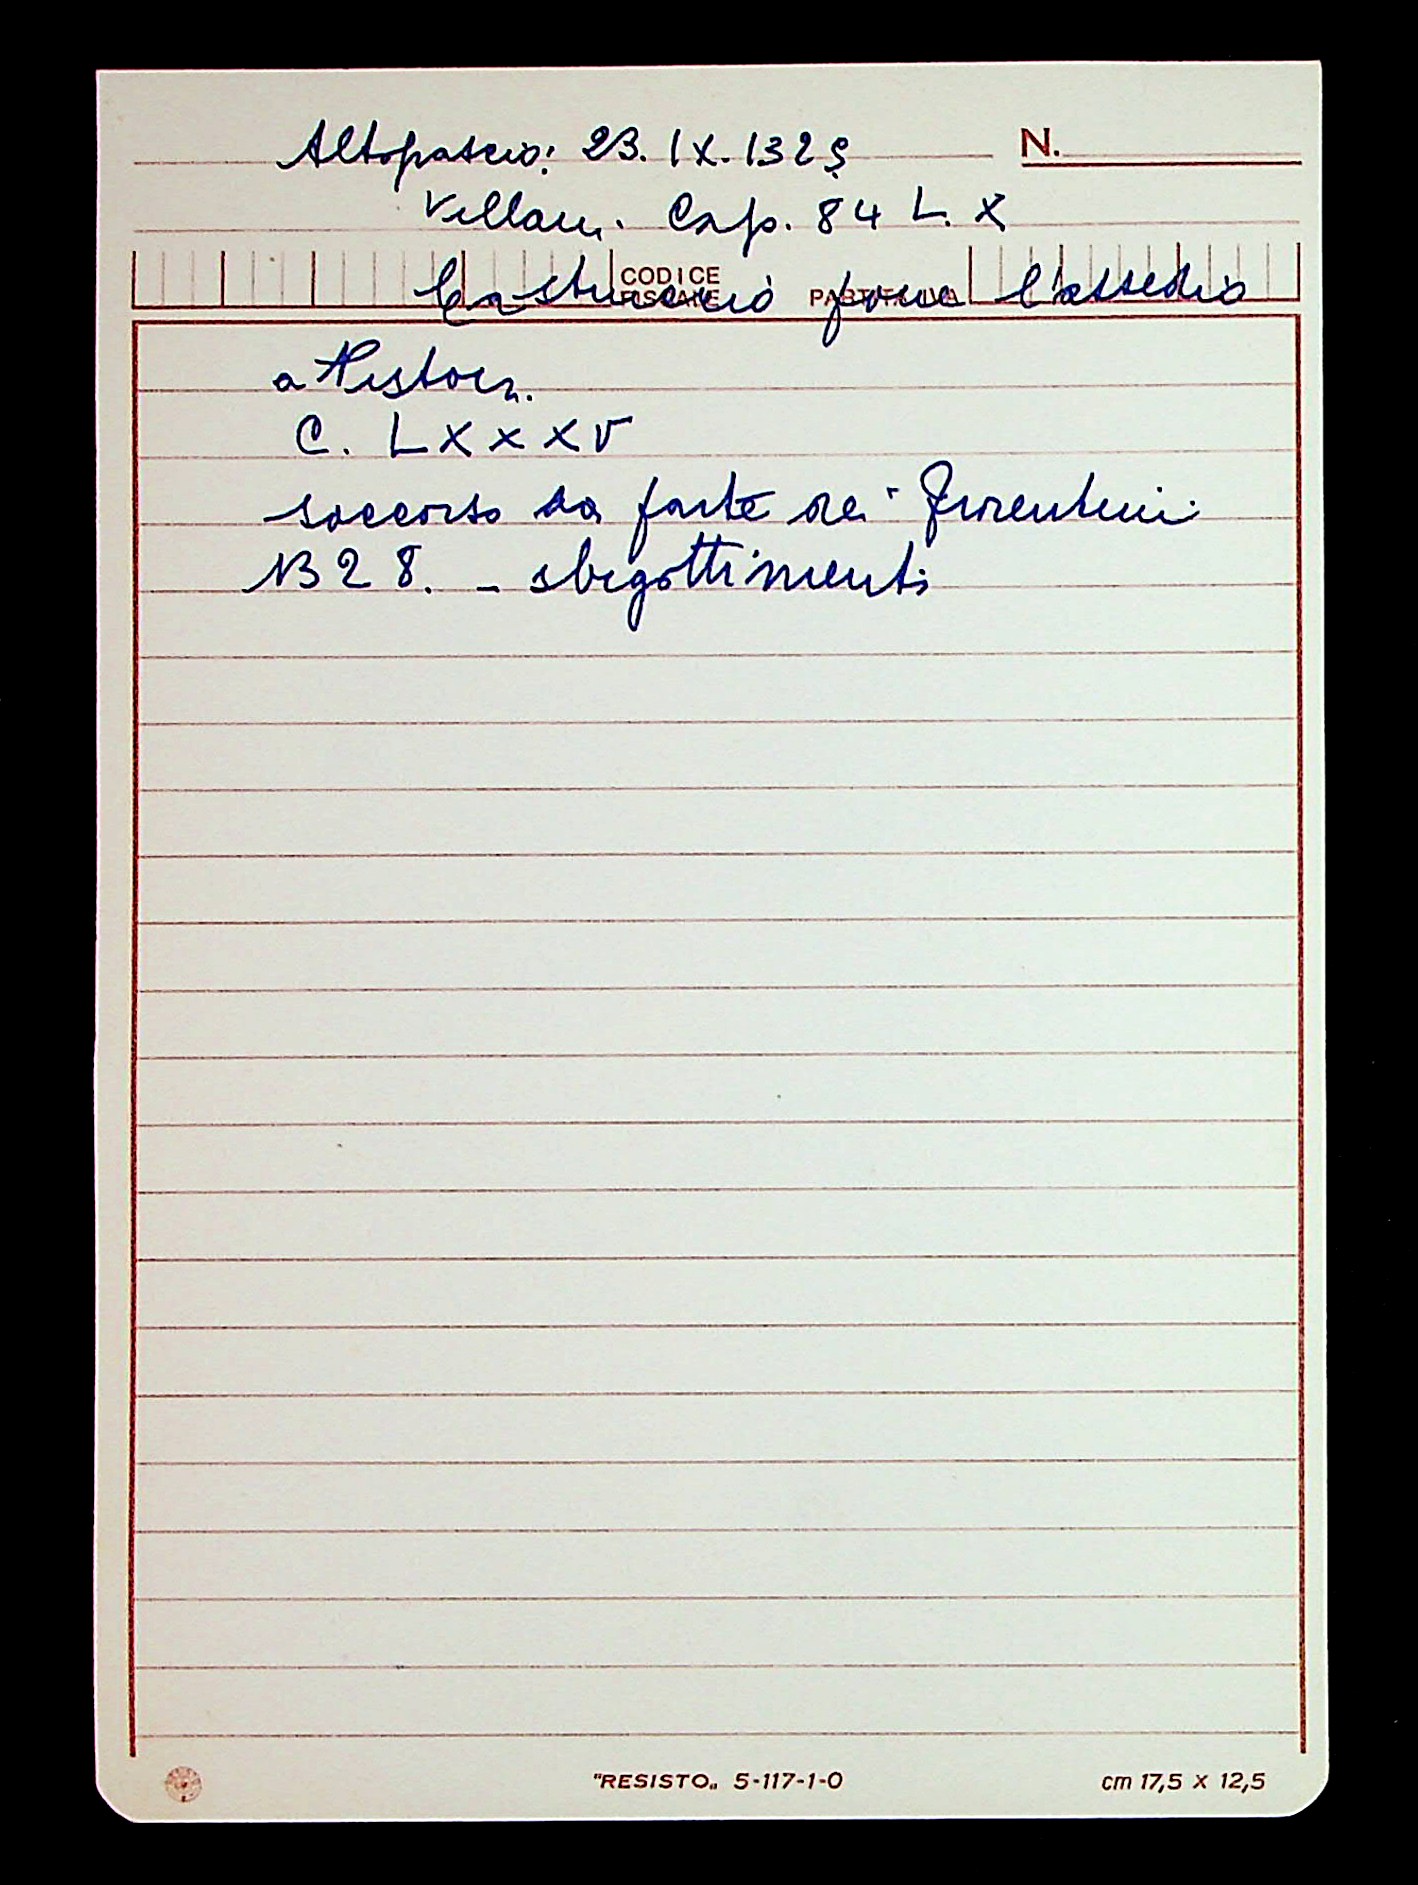 Altopascio: 23. IX. 1325
N.
Villani. Cap. 84 L. X
CODICE FISCALE PARTITA IVA
Castruccio pone l'assedio
a Pistoia.
C. LXXXV
soccorso da parte dei Fiorentini.
1328. - sbigottimenti
"RESISTO" 5-117-1-0
cm 17,5 x 12,5